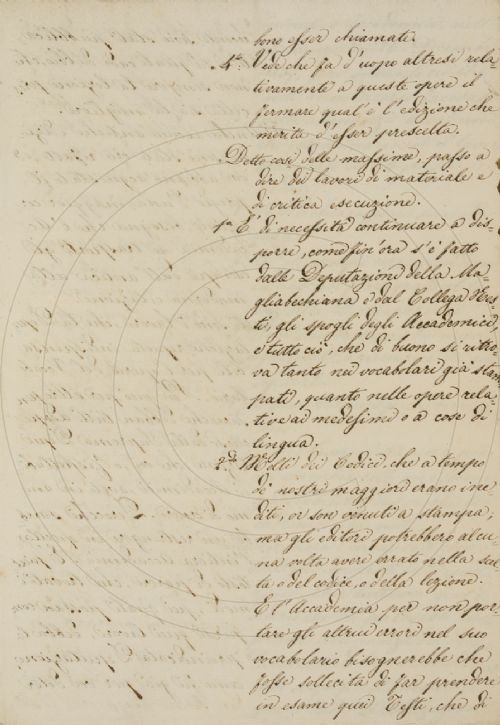 bono esser chiamate.
4.ª Vede che fa d'uopo altresì rela
tivamente a queste opere il
fermare qual'è l'edizione che
merita d'esser prescelta.
Dette così delle massime, passo a
dire dei lavori di materiale e
di critica esecuzione.
1.ª È di necessità continuare a dis-
porre, come fin'ora s'è fatto
dalla Deputazione della Ma-
gliabechiana e dal Collega
ti, gli spogli degli Accademici,
e tutto ciò, che di buono si ritro-
va tanto nei vocabolari già stam
pati, quanto nelle opere rela-
tive ai medesimi o a cose di
lingua.
2.ª Molti dei Codici che a tempo
di nostri maggiori erano ine
diti, or son venuti a stampa;
ma gli editori potrebbero alcu
na volta avere errato nella scel
ta o del codice, o della lezione.
E l'Accademia per non por-
tare gli altrui errori nel suo
vocabolario bisognerebbe che
fosse sollecita di far prendere
in esame quei Testi, che di